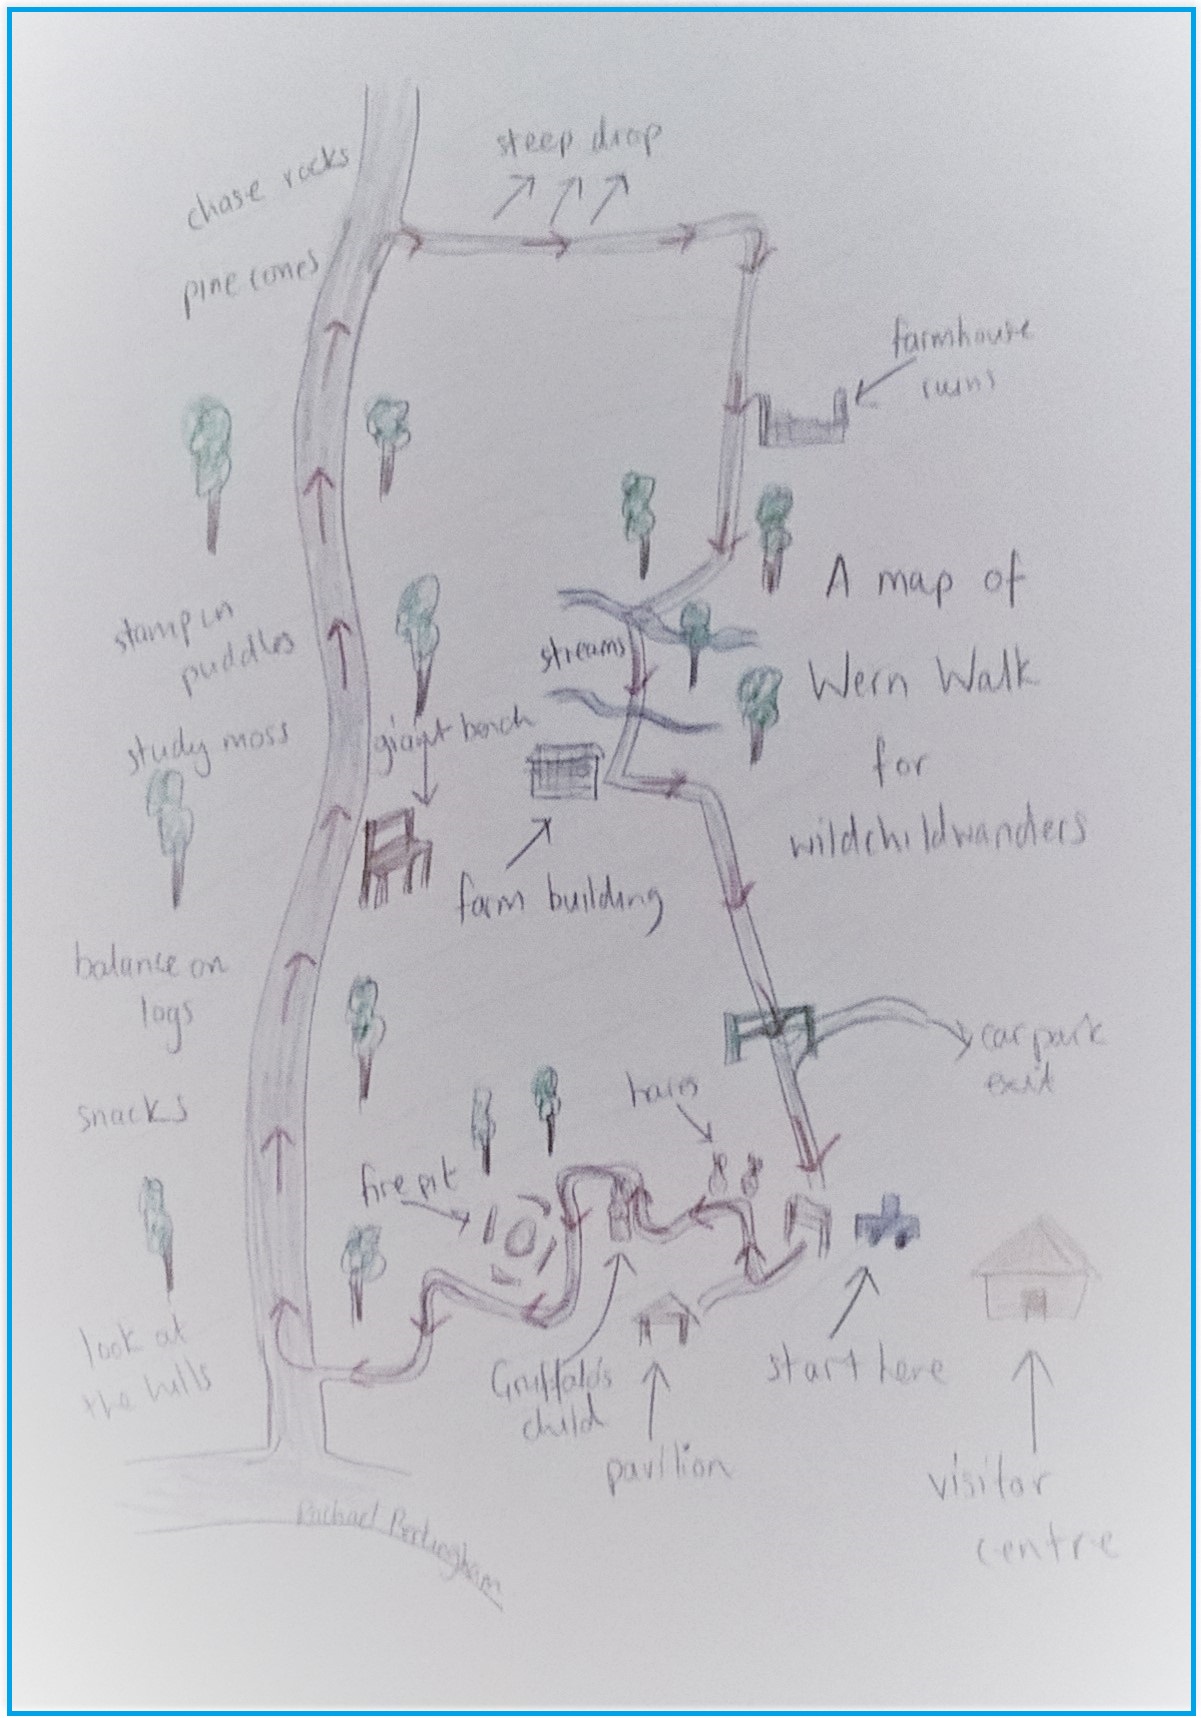 steep drop
chase rocks
pine cones
farmhouse
ruins
A map of
Wern Walk
for
wildchildwanders
stamp in
puddles
streams
study moss
giant bench
farm building
balance on
logs
car park
exit
snacks
hares
fire pit
look at
the hills
Gruffalo's
child
start here
pavilion
visitor
centre
Rachael